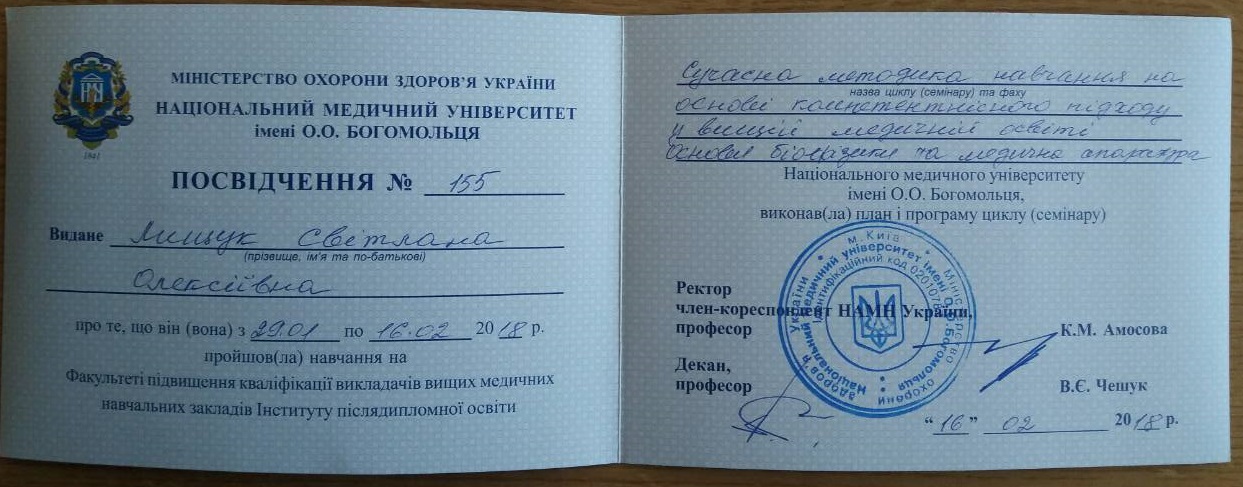 МІНІСТЕРСТВО ОХОРОНИ ЗДОРОВ'Я УКРАЇНИ
НАЦІОНАЛЬНИЙ МЕДИЧНИЙ УНІВЕРСИТЕТ
імені О.О. БОГОМОЛЬЦЯ
1841
ПОСВІДЧЕННЯ № 155
Видане Мищук Світлана
(прізвище, ім'я та по-батькові)
Олексіївна
про те, що він (вона) з 29.01 по 16.02 2018 р.
пройшов(ла) навчання на
Факультеті підвищення кваліфікації викладачів вищих медичних
навчальних закладів Інституту післядипломної освіти
Сучасна методика навчання на
назва циклу (семінару) та фаху
основі компетентнісного підходу
у вищій медичній освіті
Основи біофізики та медична апаратура
Національного медичного університету
імені О.О. Богомольця,
виконав(ла) план і програму циклу (семінару)
Ректор
член-кореспондент НАМН України,
професор К.М. Амосова
Декан,
професор В.Є. Чешук
"16" 02 2018 р.
м. Київ * Міністерство охорони здоров'я України
Національний медичний університет імені О.О. Богомольця
Ідентифікаційний код